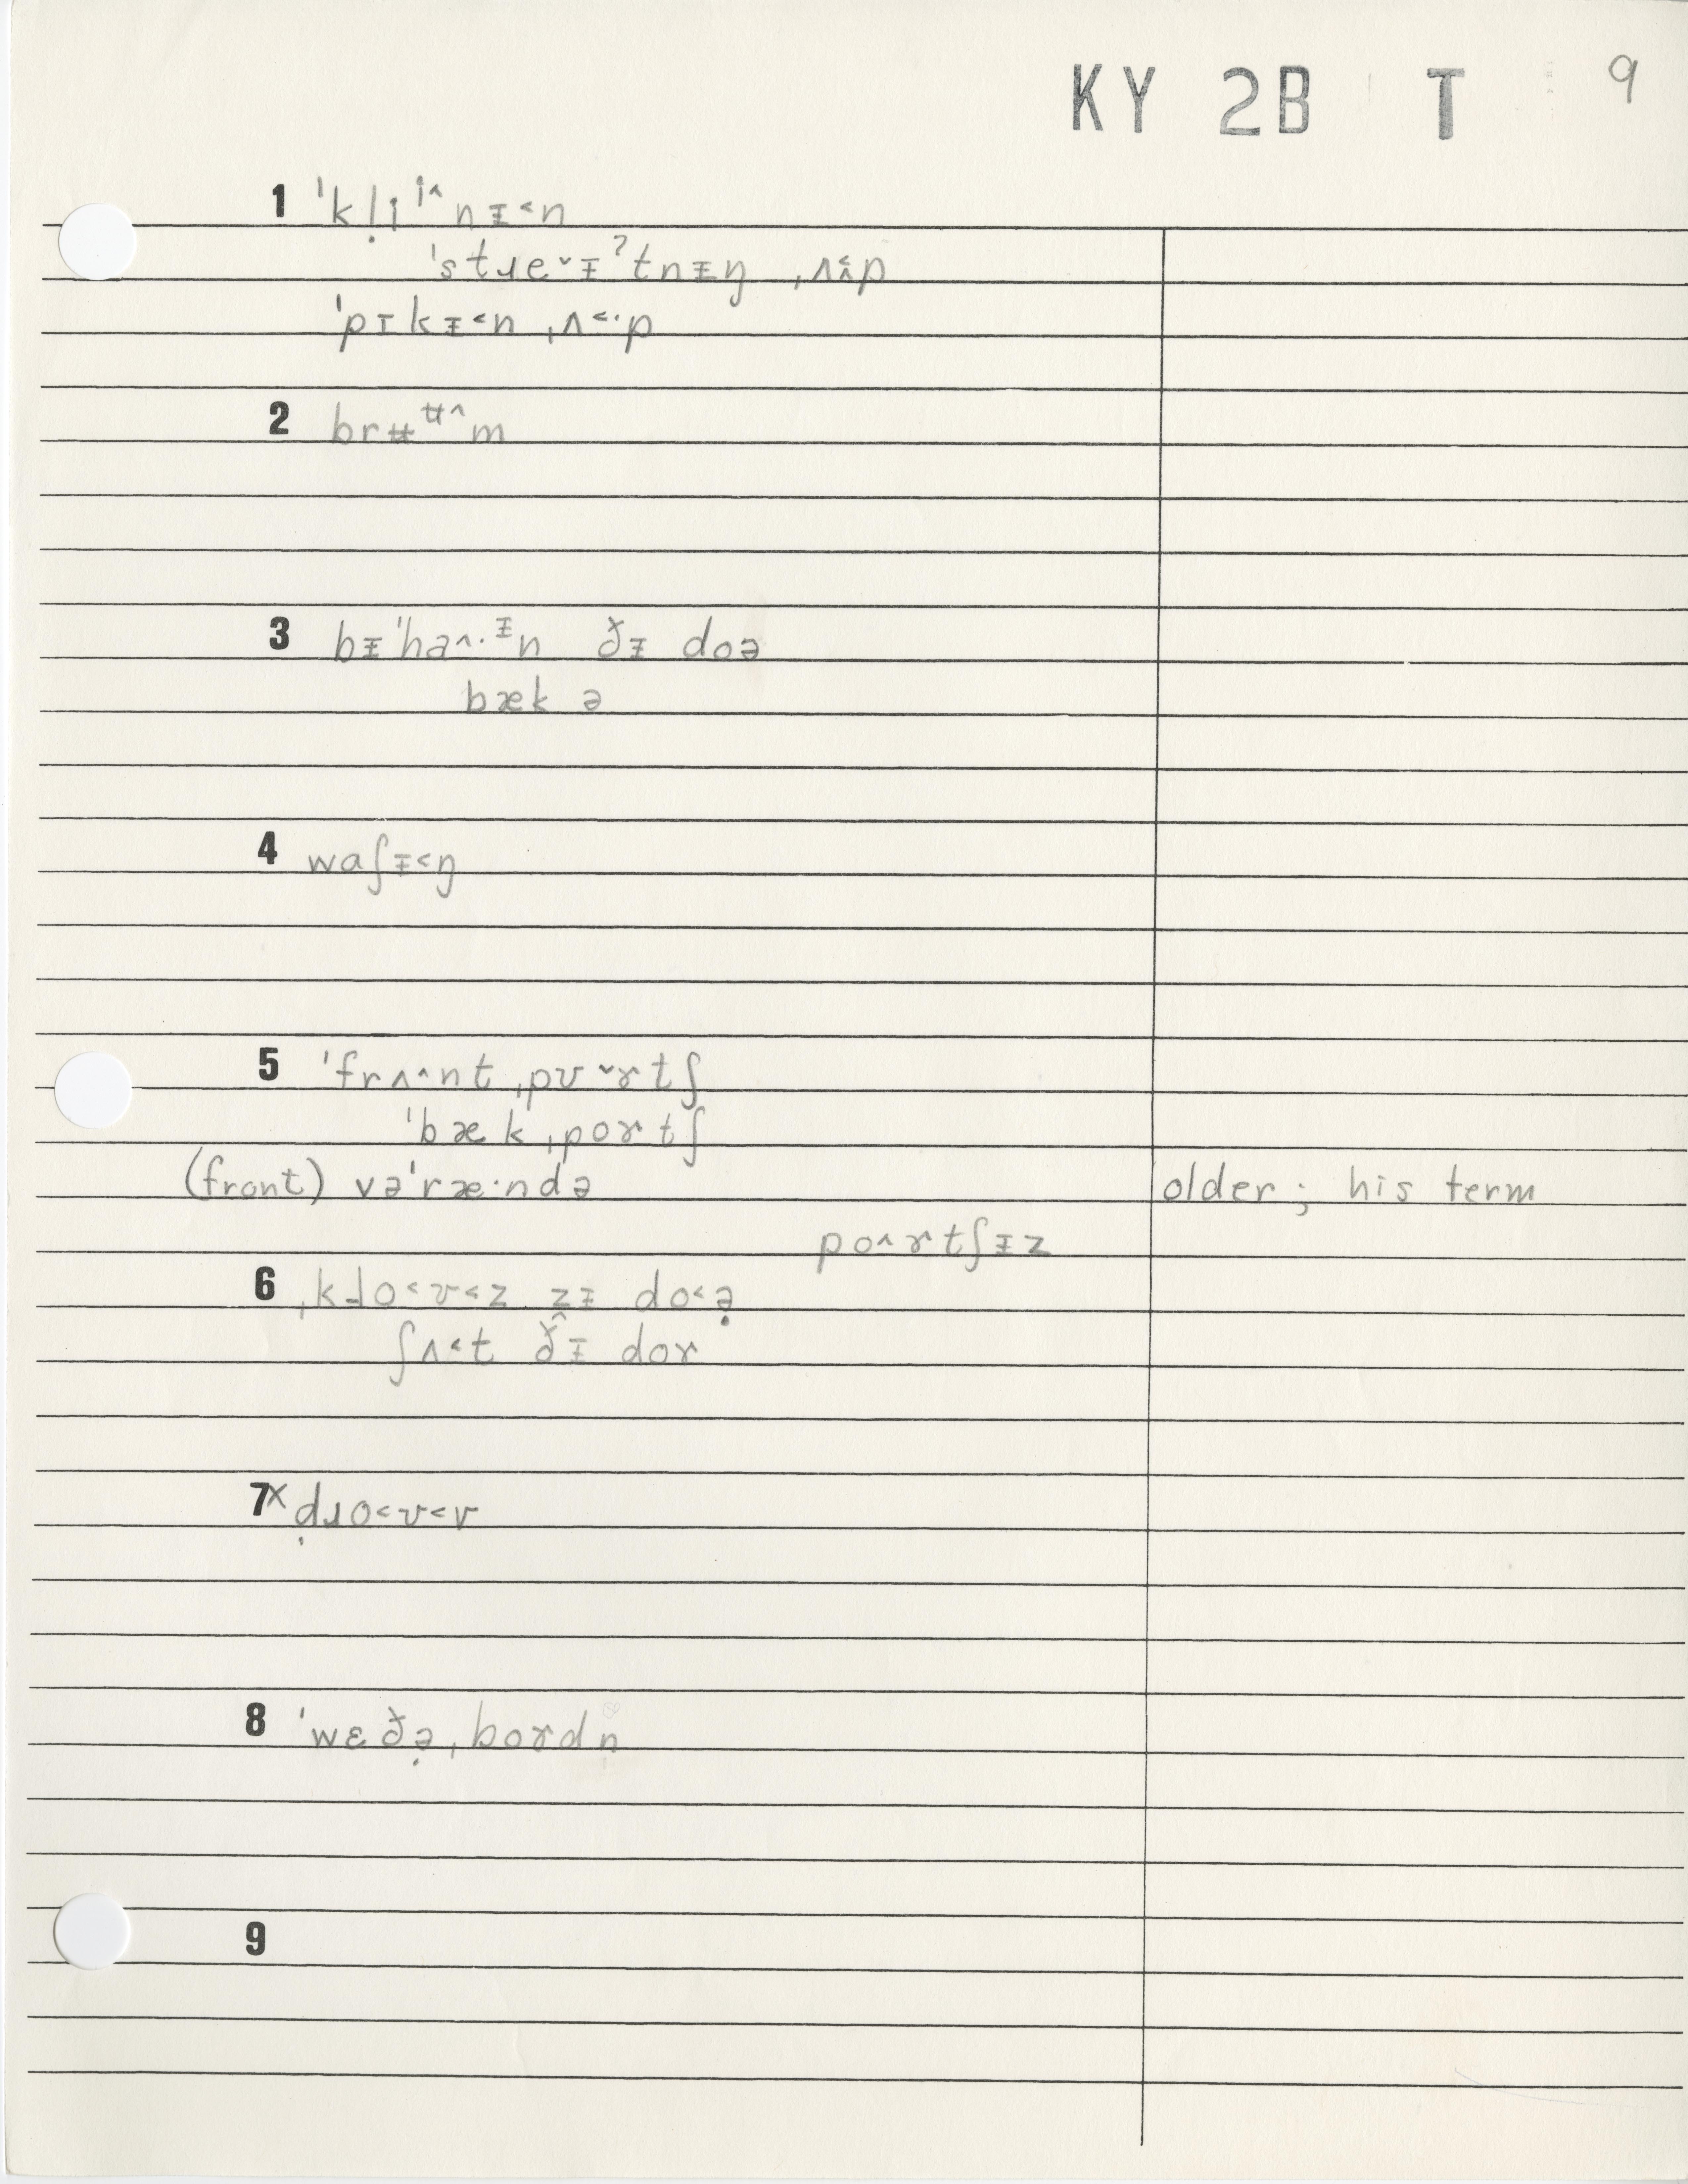 KY 2B T 9
1 ˈkl̩i̯ⁱ^nᵻ˂n
ˈstɹeˇᵻˀtnᵻŋ ˌʌ̭˂p
ˈpɪkᵻ˂n ˌʌ˂·p
2 brʉᶶ^m
3 bᵻˈha^·ᵻn ðᵻ doə
bæk ə
4 waʃᵻ˂ŋ
5 ˈfrʌ^nt ˌpʊˇɚtʃ
ˈbæk ˌpoɚtʃ
(front) vəˈræ·ndə older; his term
po^ɚtʃᵻz
6 ˌklo˂ʊ˂z z̭ᵻ do˂ə̣
ʃʌ˂t ðᵻ doɚ
7 x dɹo˂ʊ˂v
8 ˈwɛðə̣ ˌboɚdn̩
9